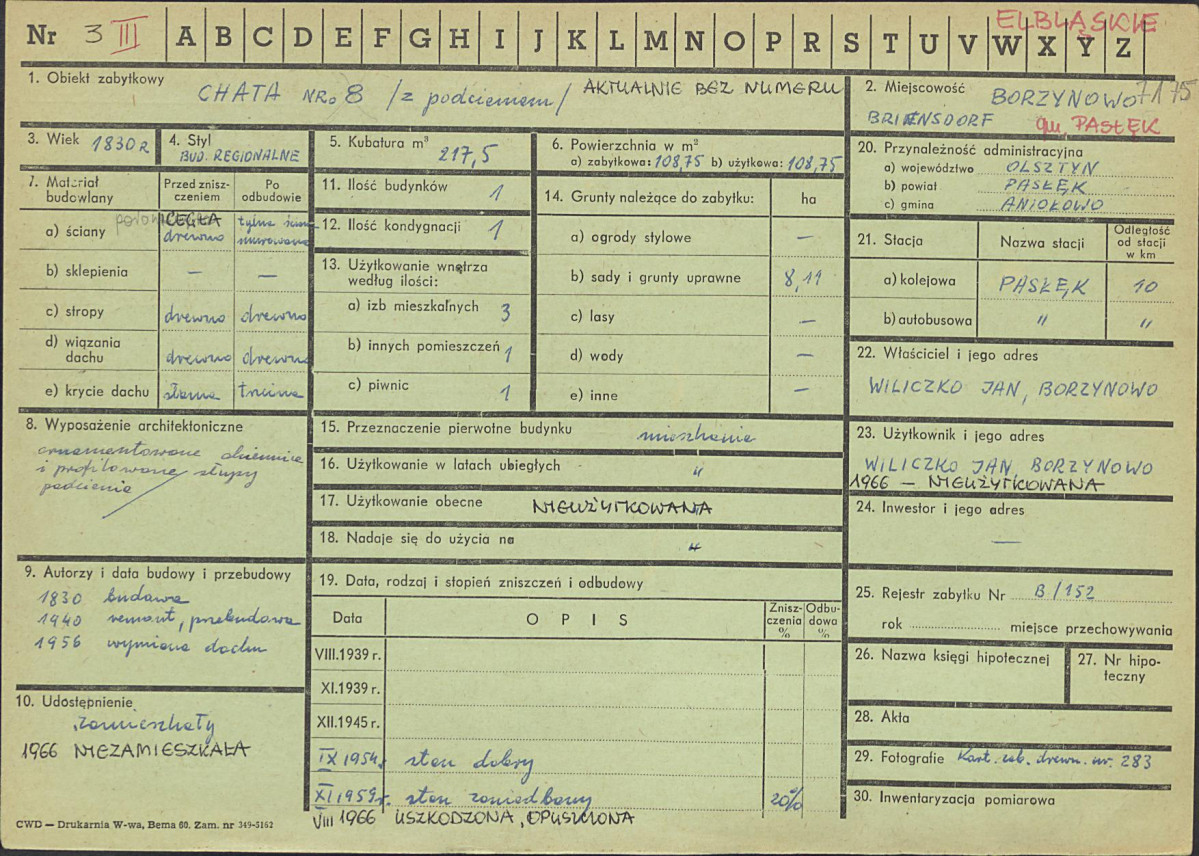 ELBLĄSKIE
Nr 3 III A B C D E F G H I J K L M N O P R S T U V W X Y Z
1. Obiekt zabytkowy
CHATA NR. 8 /z podcieniem/ AKTUALNIE BEZ NUMERU
2. Miejscowość BORZYNOWO 7175
gm. PASŁĘK
3. Wiek 1830 r
4. Styl
BUD. REGIONALNE
5. Kubatura m³
217,5
6. Powierzchnia w m²
a) zabytkowa: 108,75 b) użytkowa: 108,75
7. Materiał budowlany
Przed zniszczeniem
Po odbudowie
a) ściany
CEGŁA
drewno
tylna ściana
murowana
b) sklepienia — —
c) stropy drewno drewno
d) wiązania dachu drewno drewno
e) krycie dachu słoma trzcina
8. Wyposażenie architektoniczne
ornamentowane
i profilowane słupy
podcienia
9. Autorzy i data budowy i przebudowy
1830 budowa
1940 remont, przebudowa
1956 wymiana dachu
10. Udostępnienie
zamieszkały
1966 NIEZAMIESZKAŁA
CWD — Drukarnia W-wa, Bema 60. Zam. nr 349-5162
11. Ilość budynków 1
12. Ilość kondygnacji 1
13. Użytkowanie wnętrza
według ilości:
a) izb mieszkalnych 3
b) innych pomieszczeń 1
c) piwnic 1
14. Grunty należące do zabytku: ha
a) ogrody stylowe —
b) sady i grunty uprawne 8,11
c) lasy —
d) wody —
e) inne —
15. Przeznaczenie pierwotne budynku mieszkanie
16. Użytkowanie w latach ubiegłych "
17. Użytkowanie obecne NIEUŻYTKOWANA
18. Nadaje się do użycia na "
19. Data, rodzaj i stopień zniszczeń i odbudowy
Data
O P I S
Zniszczenia %
Odbudowa %
VIII.1939 r.
XI.1939 r.
XII.1945 r.
IX 1954 r. stan dobry
XI 1959 r. stan zaniedbany 20%
VIII 1966 USZKODZONA, OPUSZCZONA
20. Przynależność administracyjna
a) województwo OLSZTYN
b) powiat PASŁĘK
c) gmina ANIOŁOWO
21. Stacja
Nazwa stacji
Odległość od stacji w km
a) kolejowa PASŁĘK 10
b) autobusowa " "
22. Właściciel i jego adres
WILICZKO JAN, BORZYNOWO
23. Użytkownik i jego adres
WILICZKO JAN, BORZYNOWO
1966 — NIEUŻYTKOWANA
24. Inwestor i jego adres
—
25. Rejestr zabytku Nr B/152
rok miejsce przechowywania
26. Nazwa księgi hipotecznej
27. Nr hipoteczny
28. Akta
29. Fotografie Kart. zab. drewn. nr. 283
30. Inwentaryzacja pomiarowa